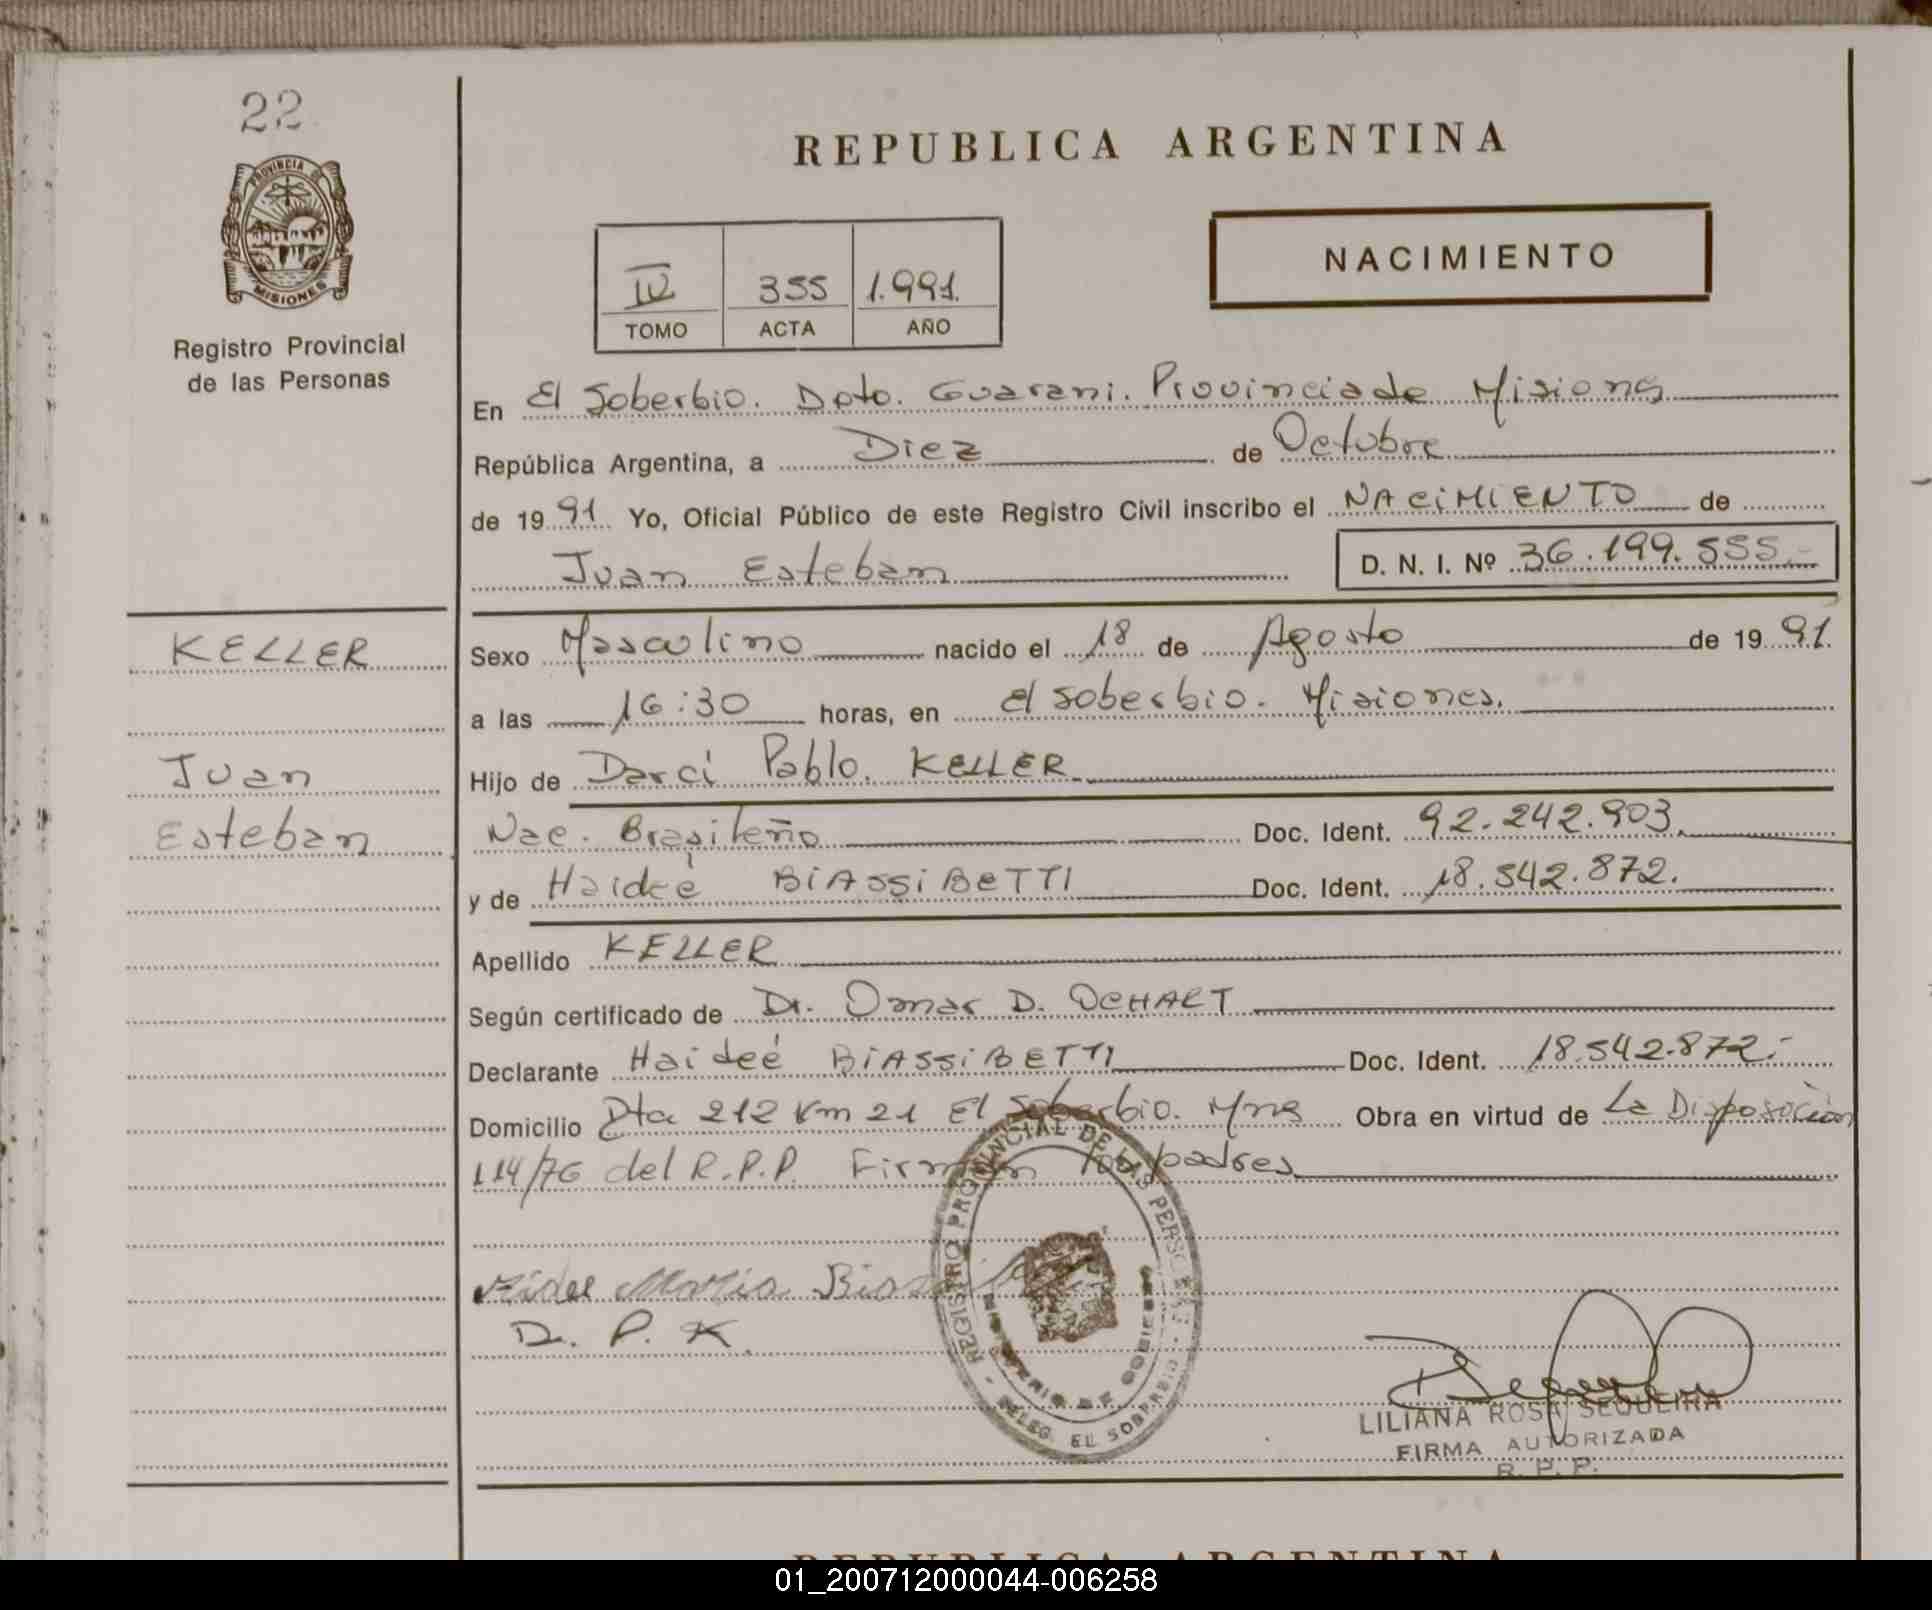 22
PROVINCIA DE
MISIONES
Registro Provincial
de las Personas
REPUBLICA ARGENTINA
NACIMIENTO
IV 355 1.991.
TOMO ACTA AÑO
En El Soberbio. Dpto. Guarani. Provincia de Misiones
República Argentina, a Diez de Octubre
de 19 91 Yo, Oficial Público de este Registro Civil inscribo el NACIMIENTO de
Juan Esteban D. N. I. Nº 36.199.555.-
KELLER
Juan
Esteban
Sexo Masculino nacido el 18 de Agosto de 19 91.
a las 16:30 horas, en El Soberbio. Misiones.
Hijo de Darci Pablo. KELLER
Nac. Brasileño Doc. Ident. 92.242.903.
y de Haideé BiASSiBETTI Doc. Ident. 18.542.872.
Apellido KELLER
Según certificado de Dr. Omar D. OCHART
Declarante Haideé BiASSiBETTI Doc. Ident. 18.542.872.-
Domicilio Dta 212 Km 21 El Soberbio. Mns Obra en virtud de La Disposición
114/76 del R.P.P. Firman los padres
Maria
D. P. K.
REGISTRO PROVINCIAL DE LAS PERSONAS
MINISTERIO DE GOBIERNO
DELEG. EL SOBERBIO
LILIANA ROSA SEQUEIRA
FIRMA AUTORIZADA
R. P. P.
REPUBLICA ARGENTINA
01_200712000044-006258